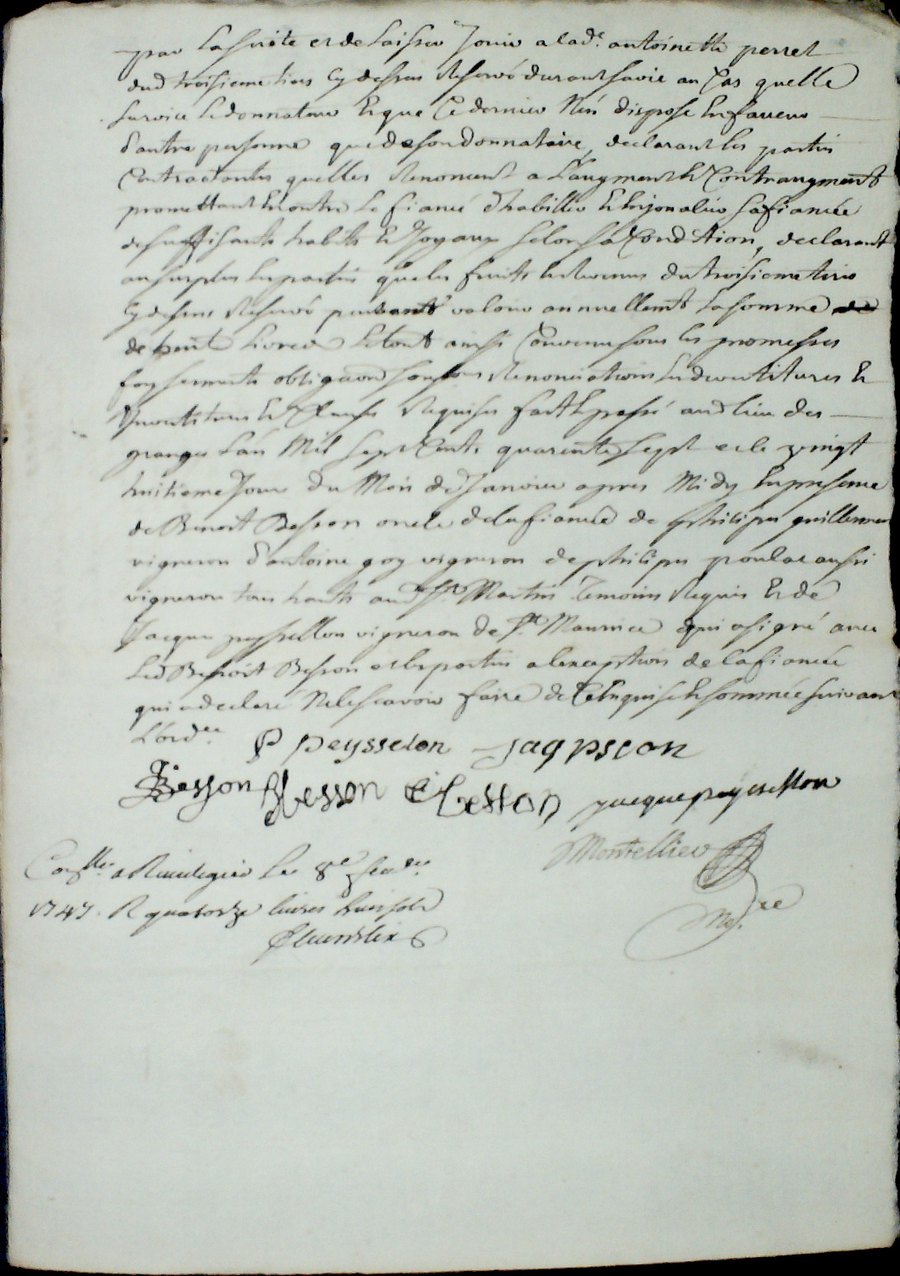 par la suite et de laisser Jouir a lad.e antoinette perret
dud troisieme tiers Cy dessus Reservé durant sa vie au Cas quelle
survive le donnateur Et que Ce dernier N'en dispose En faveur
d'autre personne que de son donnataire, declarant les partis
Contractantes quelles Renoncent a L'augment Et Contraugment
promettant Encontre le fiancé d'habiller Et Enjoualier sa fiancée
de suffisants habits Et Joyaux selon sa Condition, declarant
au surplus les partis que les fruits Et Revenus du troisieme tiers
Cy dessus Reservé peuvent valoir annuellemt la somme de
de trente Livres Le tout ainsi Convenu sous les promesses
foy serments obligaons Renonciations
Investitures Et Clauses Requises fait Et passé aud lieu des
granges L'an Mil Sept Cents quarente Sept et le vingt
huitieme Jour du Mois de Janvier apres Midy En presence
de Benoit Besson oncle de la fiancée de philipe guillerme
vigneron d'antoine goy vigneron de philipe poulat aussi
vigneron tous habts aud St Martin Temoins Requis Et de
Jacque peysselon vigneron de St Maurice qui a signé avec
Led Benoit Besson et les partis a l'exception de la fiancée
qui a declaré Ne le scavoir faire de Ce Enquise Et sommée suivant
L'ord.ce
P peysselon Jaqpscon
Besson BBesson Besson Jacque peysselon
Montellier
Con.llé a Riverie Le 8e fev.er
1747. R quatorze livres huit sols
No.re